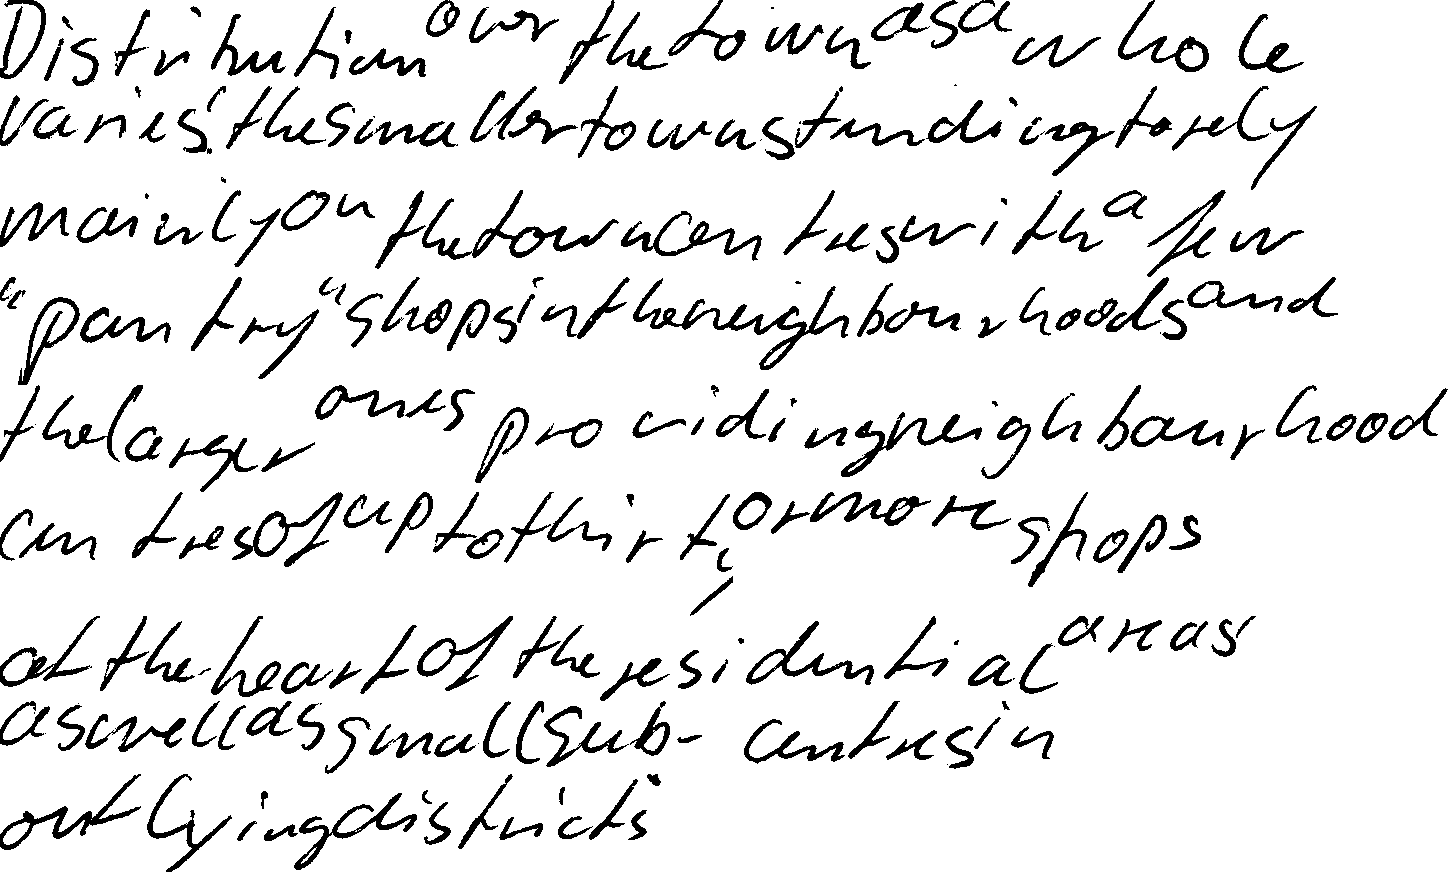 Distribution over the town as a whole
varies: the smaller towns tending to rely
mainly on the town centres with a few
"pantry" shops in the neighbourhoods and
the larger ones providing neighbourhood
centres of up to thirty or more shops
at the heart of the residential areas
as well as small sub-centres in
outlying districts